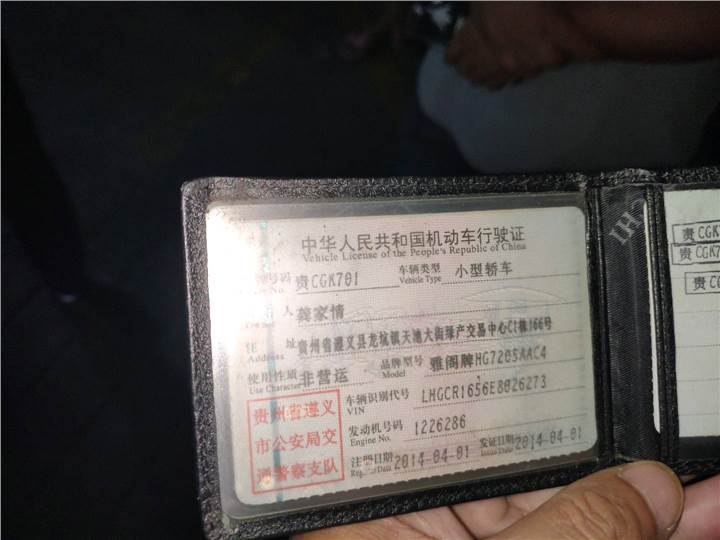 中华人民共和国机动车行驶证
Vehicle License of the People's Republic of China
号码 贵CGK701 车辆类型 小型轿车
No. Vehicle Type
人 龚家情
住 址 贵州省遵义县龙坑镇天池大街珠产交易中心C1栋166号
Address
使用性质 非营运 品牌型号 雅阁牌HG7205AAC4
Use Character Model
车辆识别代号 LHGCR1656E8026273
VIN
发动机号码 1226286
Engine No.
注册日期 2014-04-01 发证日期 2014-04-01
Register Date Issue Date
贵州省遵义
市公安局交
通警察支队
CHI
贵CGK
贵CGK7
贵C